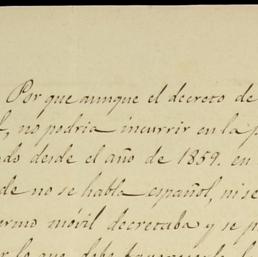 Por que aunque el decreto de
no podria incurrir en la p
do desde el año de 1859. en
de no se habla español, ni se
ermo móvil decretaba y se p
lo que debe